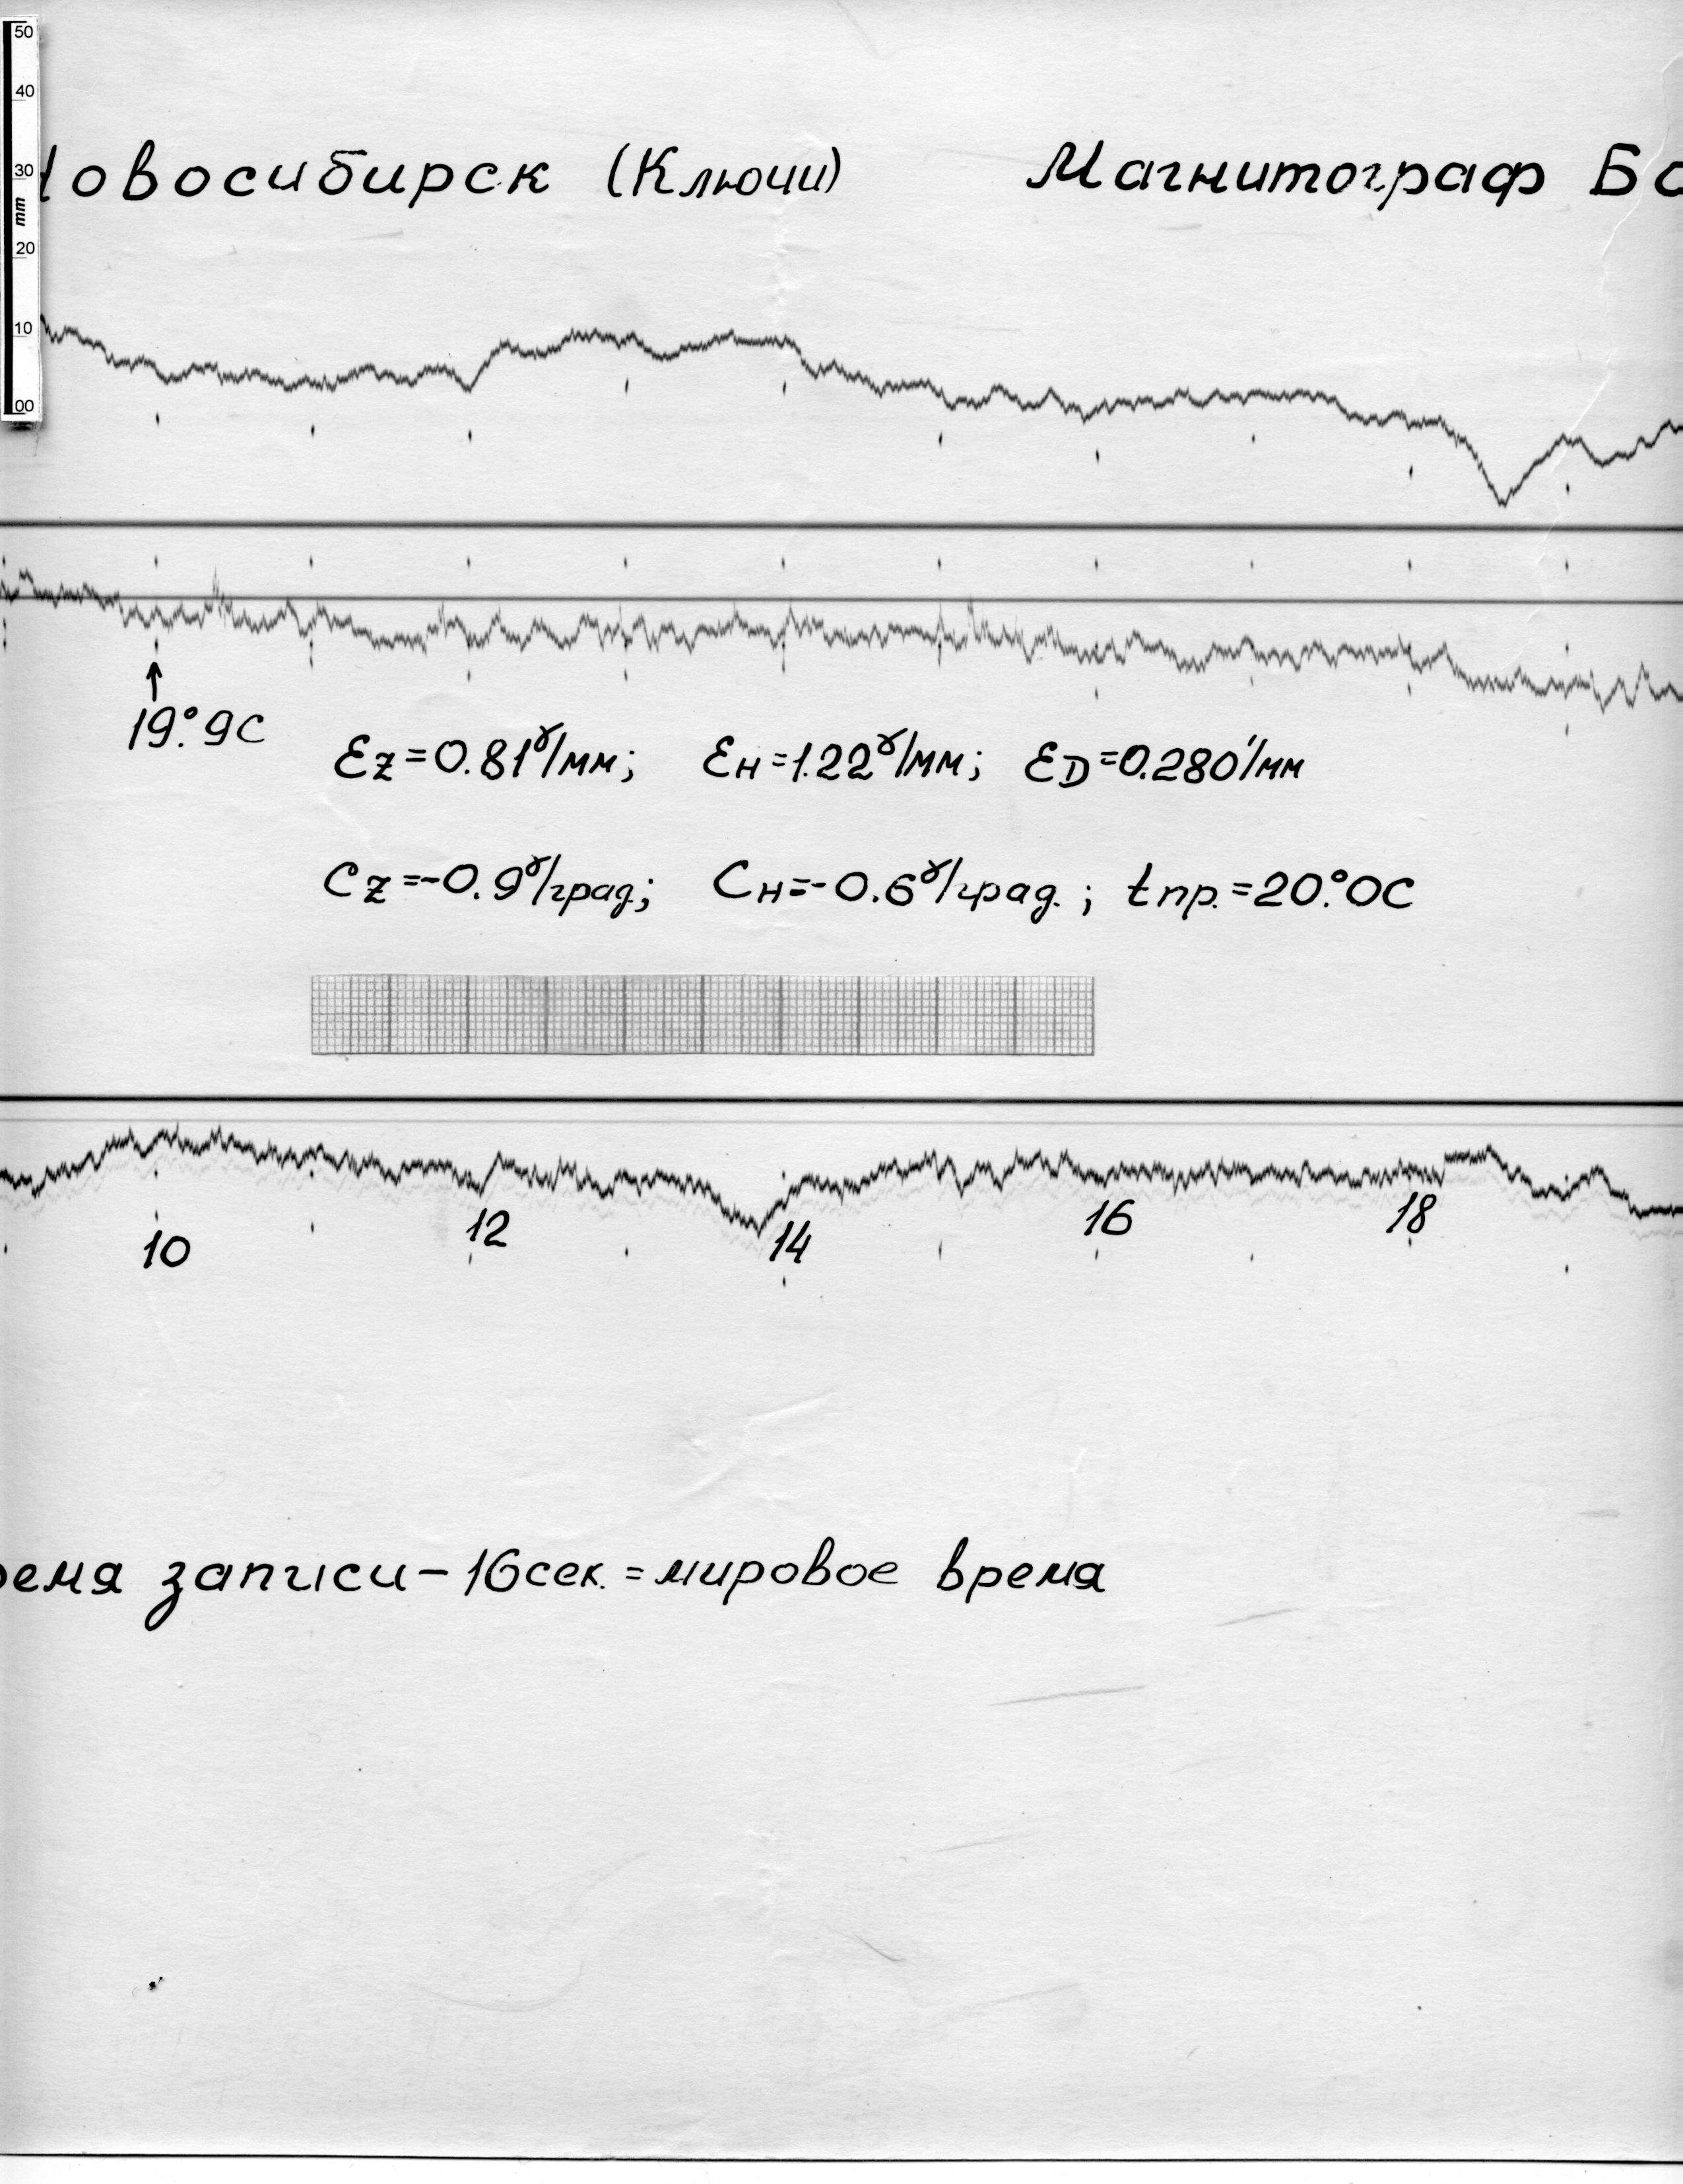 50
40
30
mm
20
10
00
Новосибирск (Ключи) Магнитограф Бо
19.°9С
Ɛz=0.81ᵞ/мм; Ɛн=1.22ᵞ/мм; ƐD=0.280′/мм
Cz=-0.9ᵞ/град.; Сн=-0.6ᵞ/град.; tпр.=20.°0С
10 12 14 16 18
ремя записи-16сек.=мировое время